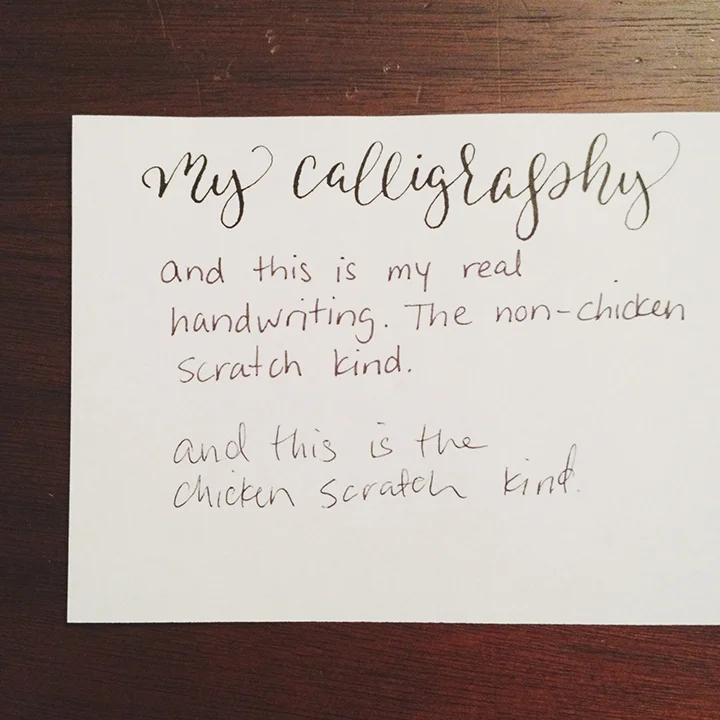 my calligraphy
and this is my real
handwriting. The non-chicken
scratch kind.
and this is the
chicken scratch kind.